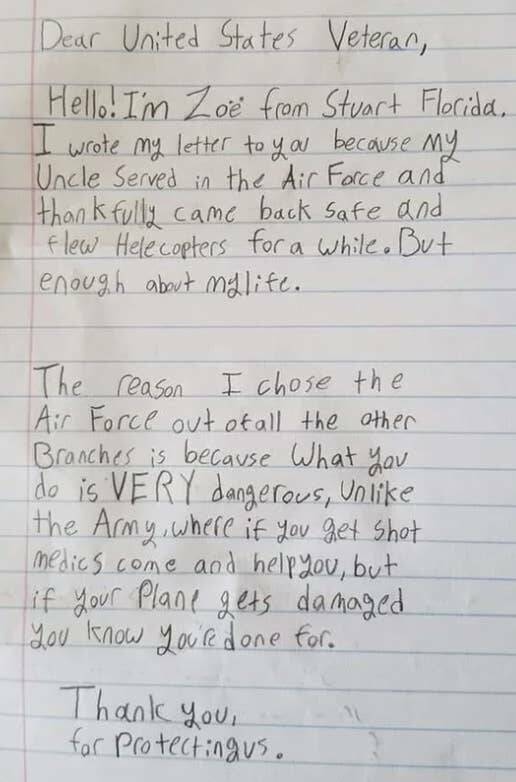 Dear United States Veteran,
Hello! I'm Zoë from Stuart Florida.
I wrote my letter to you because my
Uncle Served in the Air Force and
thankfully came back safe and
flew Helecopters for a while. But
enough about my life.
The reason I chose the
Air Force out of all the other
Branches is because What you
do is VERY dangerous, Unlike
the Army, where if you get shot
medics come and help you, but
if your Plane gets damaged
you know you're done for.
Thank you,
for Protecting us.